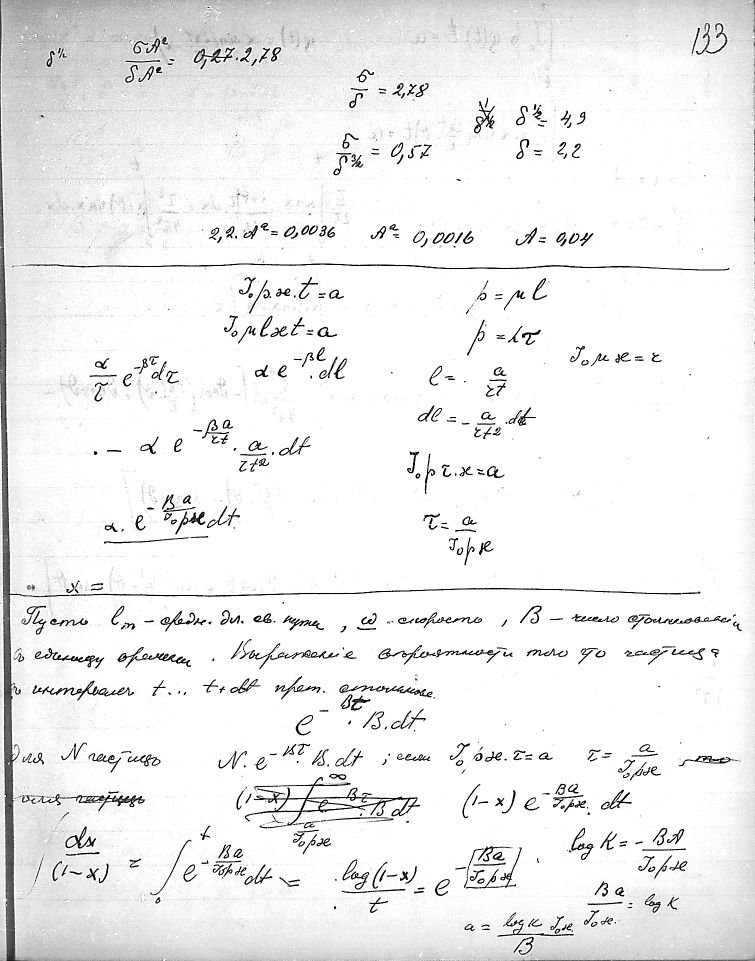 133
δ½ σA²/δA² = 0,27·2,78
σ/δ = 2,78
δ½ = 4,9
σ/δ^3/2 = 0,57 δ = 2,2
2,2·A² = 0,0036 A² = 0,0016 A = 0,04
J₀pϰ.t = a p = μl
J₀μlϰt = a p = λτ J₀μϰ = r
α/τ e^-βτ dτ α e^-βl · dl l = a/rt
dl = - a/rt² · dt
- α e^-βa/rt · a/rt² · dt
J₀pτ.ϰ = a
α. e^-Ba/J₀pϰ dt. τ = a/J₀pϰ
x =
Пусть lₘ – средн. дл. св. пути, ω – скорость, B – число столкновенiй
въ единицу времени. Выраженiе вѣроятности того что частица
въ интервалѣ t... t+dt прет. столкнов.
e^-Bτ · B.dt
для N частицъ N. e^-Bτ · B.dt ; если J₀pϰ.τ = a τ = a/J₀pϰ, то
для частицъ (1-x) ∫ a/J₀pϰ ∞ e^-Bτ · B dt (1-x) e^-Ba/J₀pϰ . dt
∫ dx/(1-x) = ∫₀^t e^-Ba/J₀pϰ dt = log(1-x)/t = e^-Ba/J₀pϰ . log K = - BA/J₀pϰ
Ba/J₀ϰ. = log K
a = log K J₀ϰ/B